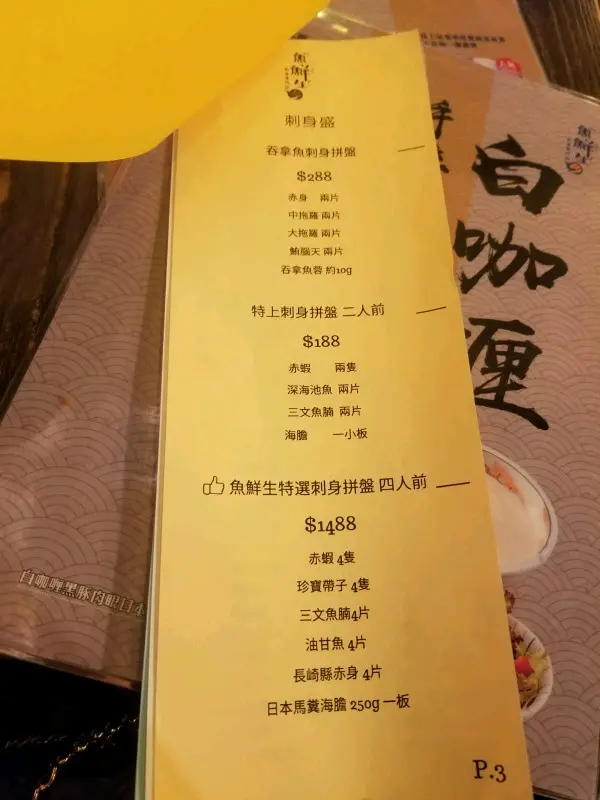 魚鮮生
刺身盛
吞拿魚刺身拼盤
$288
赤身 兩片
中拖羅 兩片
大拖羅 兩片
鮪腦天 兩片
吞拿魚蓉 約10g
特上刺身拼盤 二人前
$188
赤蝦 兩隻
深海池魚 兩片
三文魚腩 兩片
海膽 一小板
魚鮮生特選刺身拼盤 四人前
$1488
赤蝦 4隻
珍寶帶子 4隻
三文魚腩4片
油甘魚 4片
長崎縣赤身 4片
日本馬糞海膽 250g 一板
P.3
魚鮮生
白咖喱
白咖喱黑豚肉眼日本